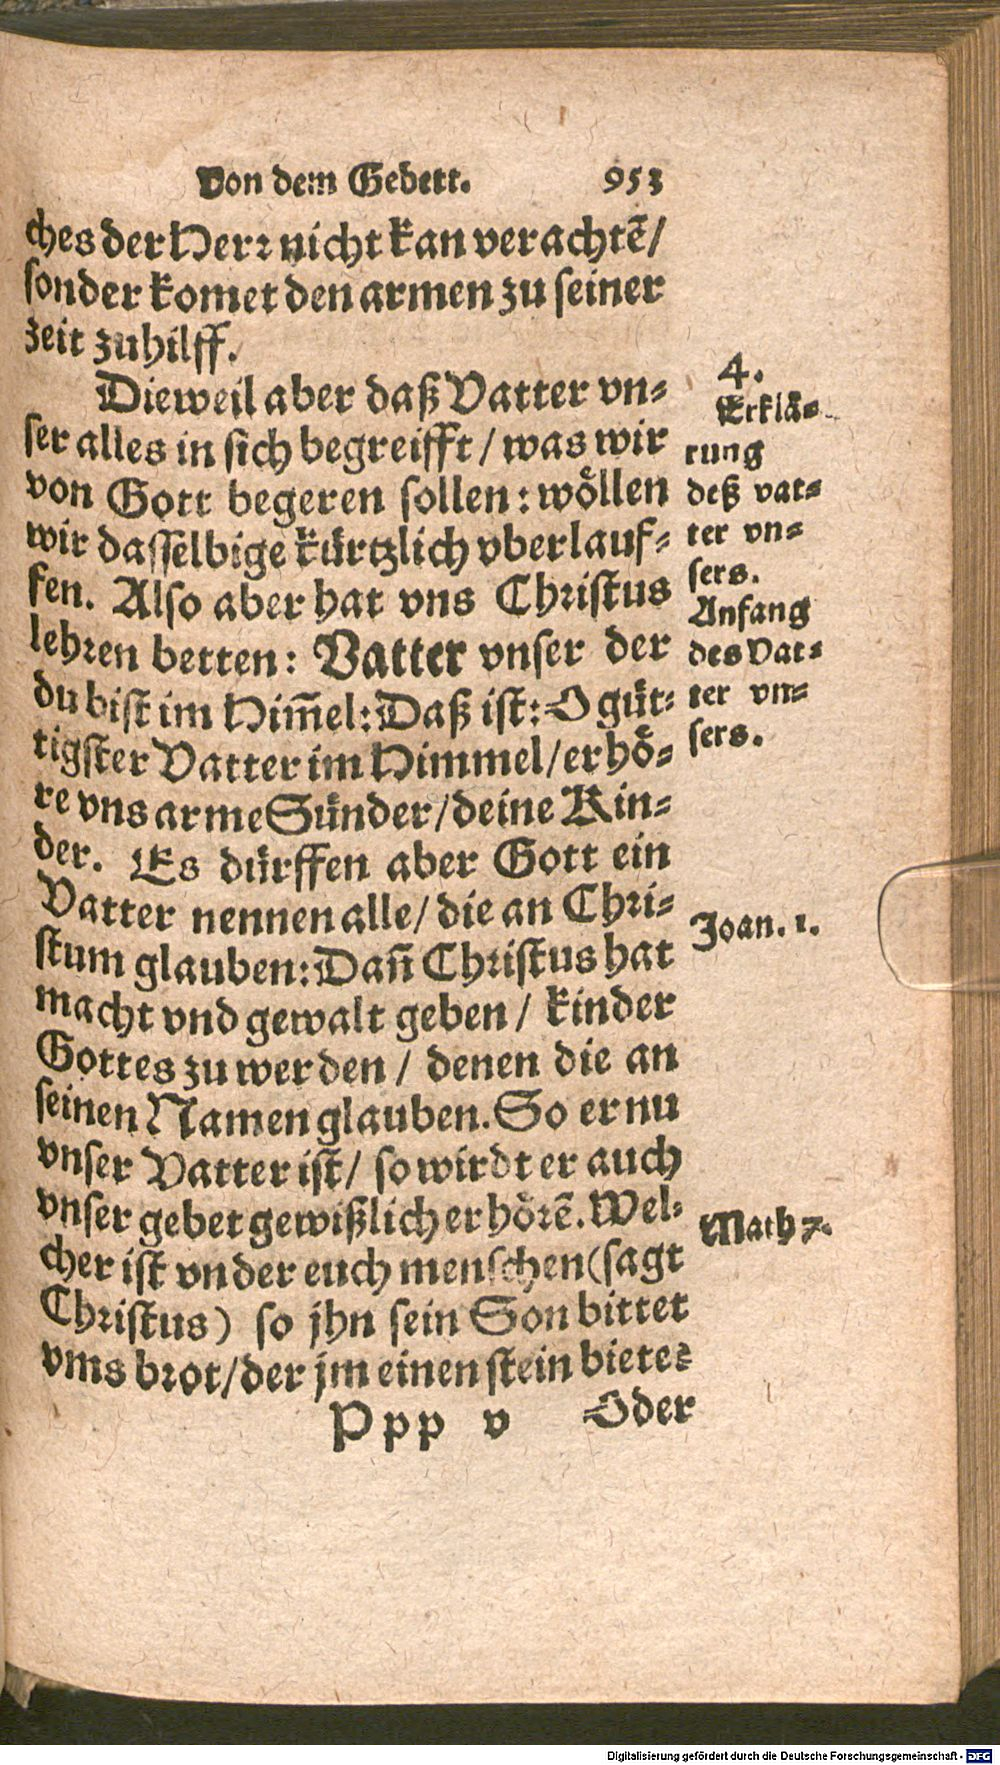 Von dem Gebett. 953
ches der Herr nicht kan verachtẽ/
sonder komet den armen zu seiner
zeit zuhilff.
Dieweil aber daß Vatter vn-
ser alles in sich begreifft / was wir
von Gott begeren sollen: wöllen
wir dasselbige kürtzlich vberlauf-
fen. Also aber hat vns Christus
lehren betten: Vatter vnser der
du bist im Him̃el: Daß ist: O güt-
tigster Vatter im Himmel/erhö-
re vns arme Sünder/deine Kin-
der. Es dürffen aber Gott ein
Vatter nennen alle/ die an Chri-
stum glauben: Dañ Christus hat
macht vnd gewalt geben / kinder
Gottes zu werden / denen die an
seinen Namen glauben. So er nu
vnser Vatter ist/ so wirdt er auch
vnser gebet gewißlich erhörẽ. Wel-
cher ist vnder euch menschen (sagt
Christus) so jhn sein Son bittet
vms brot/der jm einen stein biete?
Ppp v Oder
4.
Erklä-
rung
deß vat-
ter vn-
sers.
Anfang
des Vat-
ter vn-
sers.
Joan. 1.
Math 7.
Digitalisierung gefördert durch die Deutsche Forschungsgemeinschaft - DFG